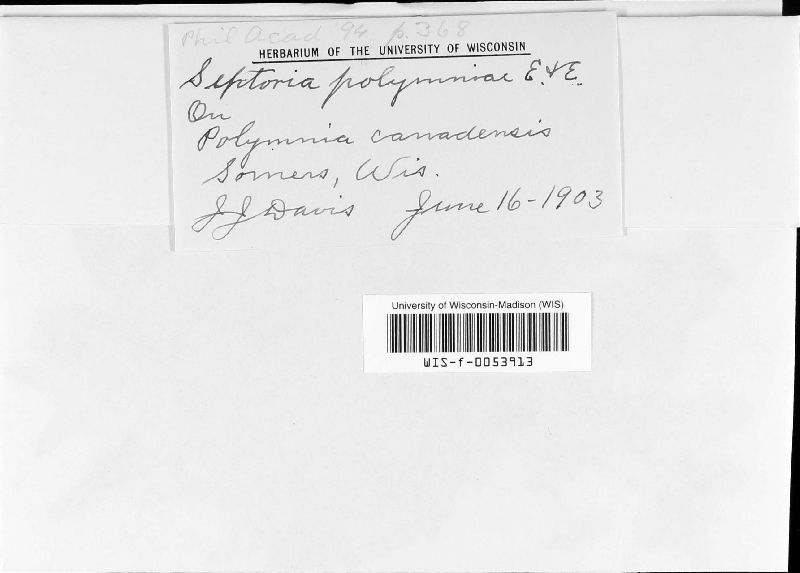 Phil Acad '94 p. 368
HERBARIUM OF THE UNIVERSITY OF WISCONSIN
Septoria polymniae E. & E.
On
Polymnia canadensis
Somers, Wis.
J J Davis June 16-1903
University of Wisconsin-Madison (WIS)
WIS-f-0053913